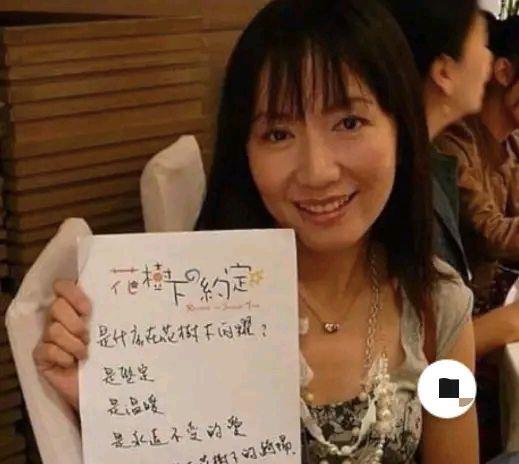 花樹下の約定
是什麼在花樹下閃耀?
是堅定
是溫暖
是永遠不變的愛
花樹下的